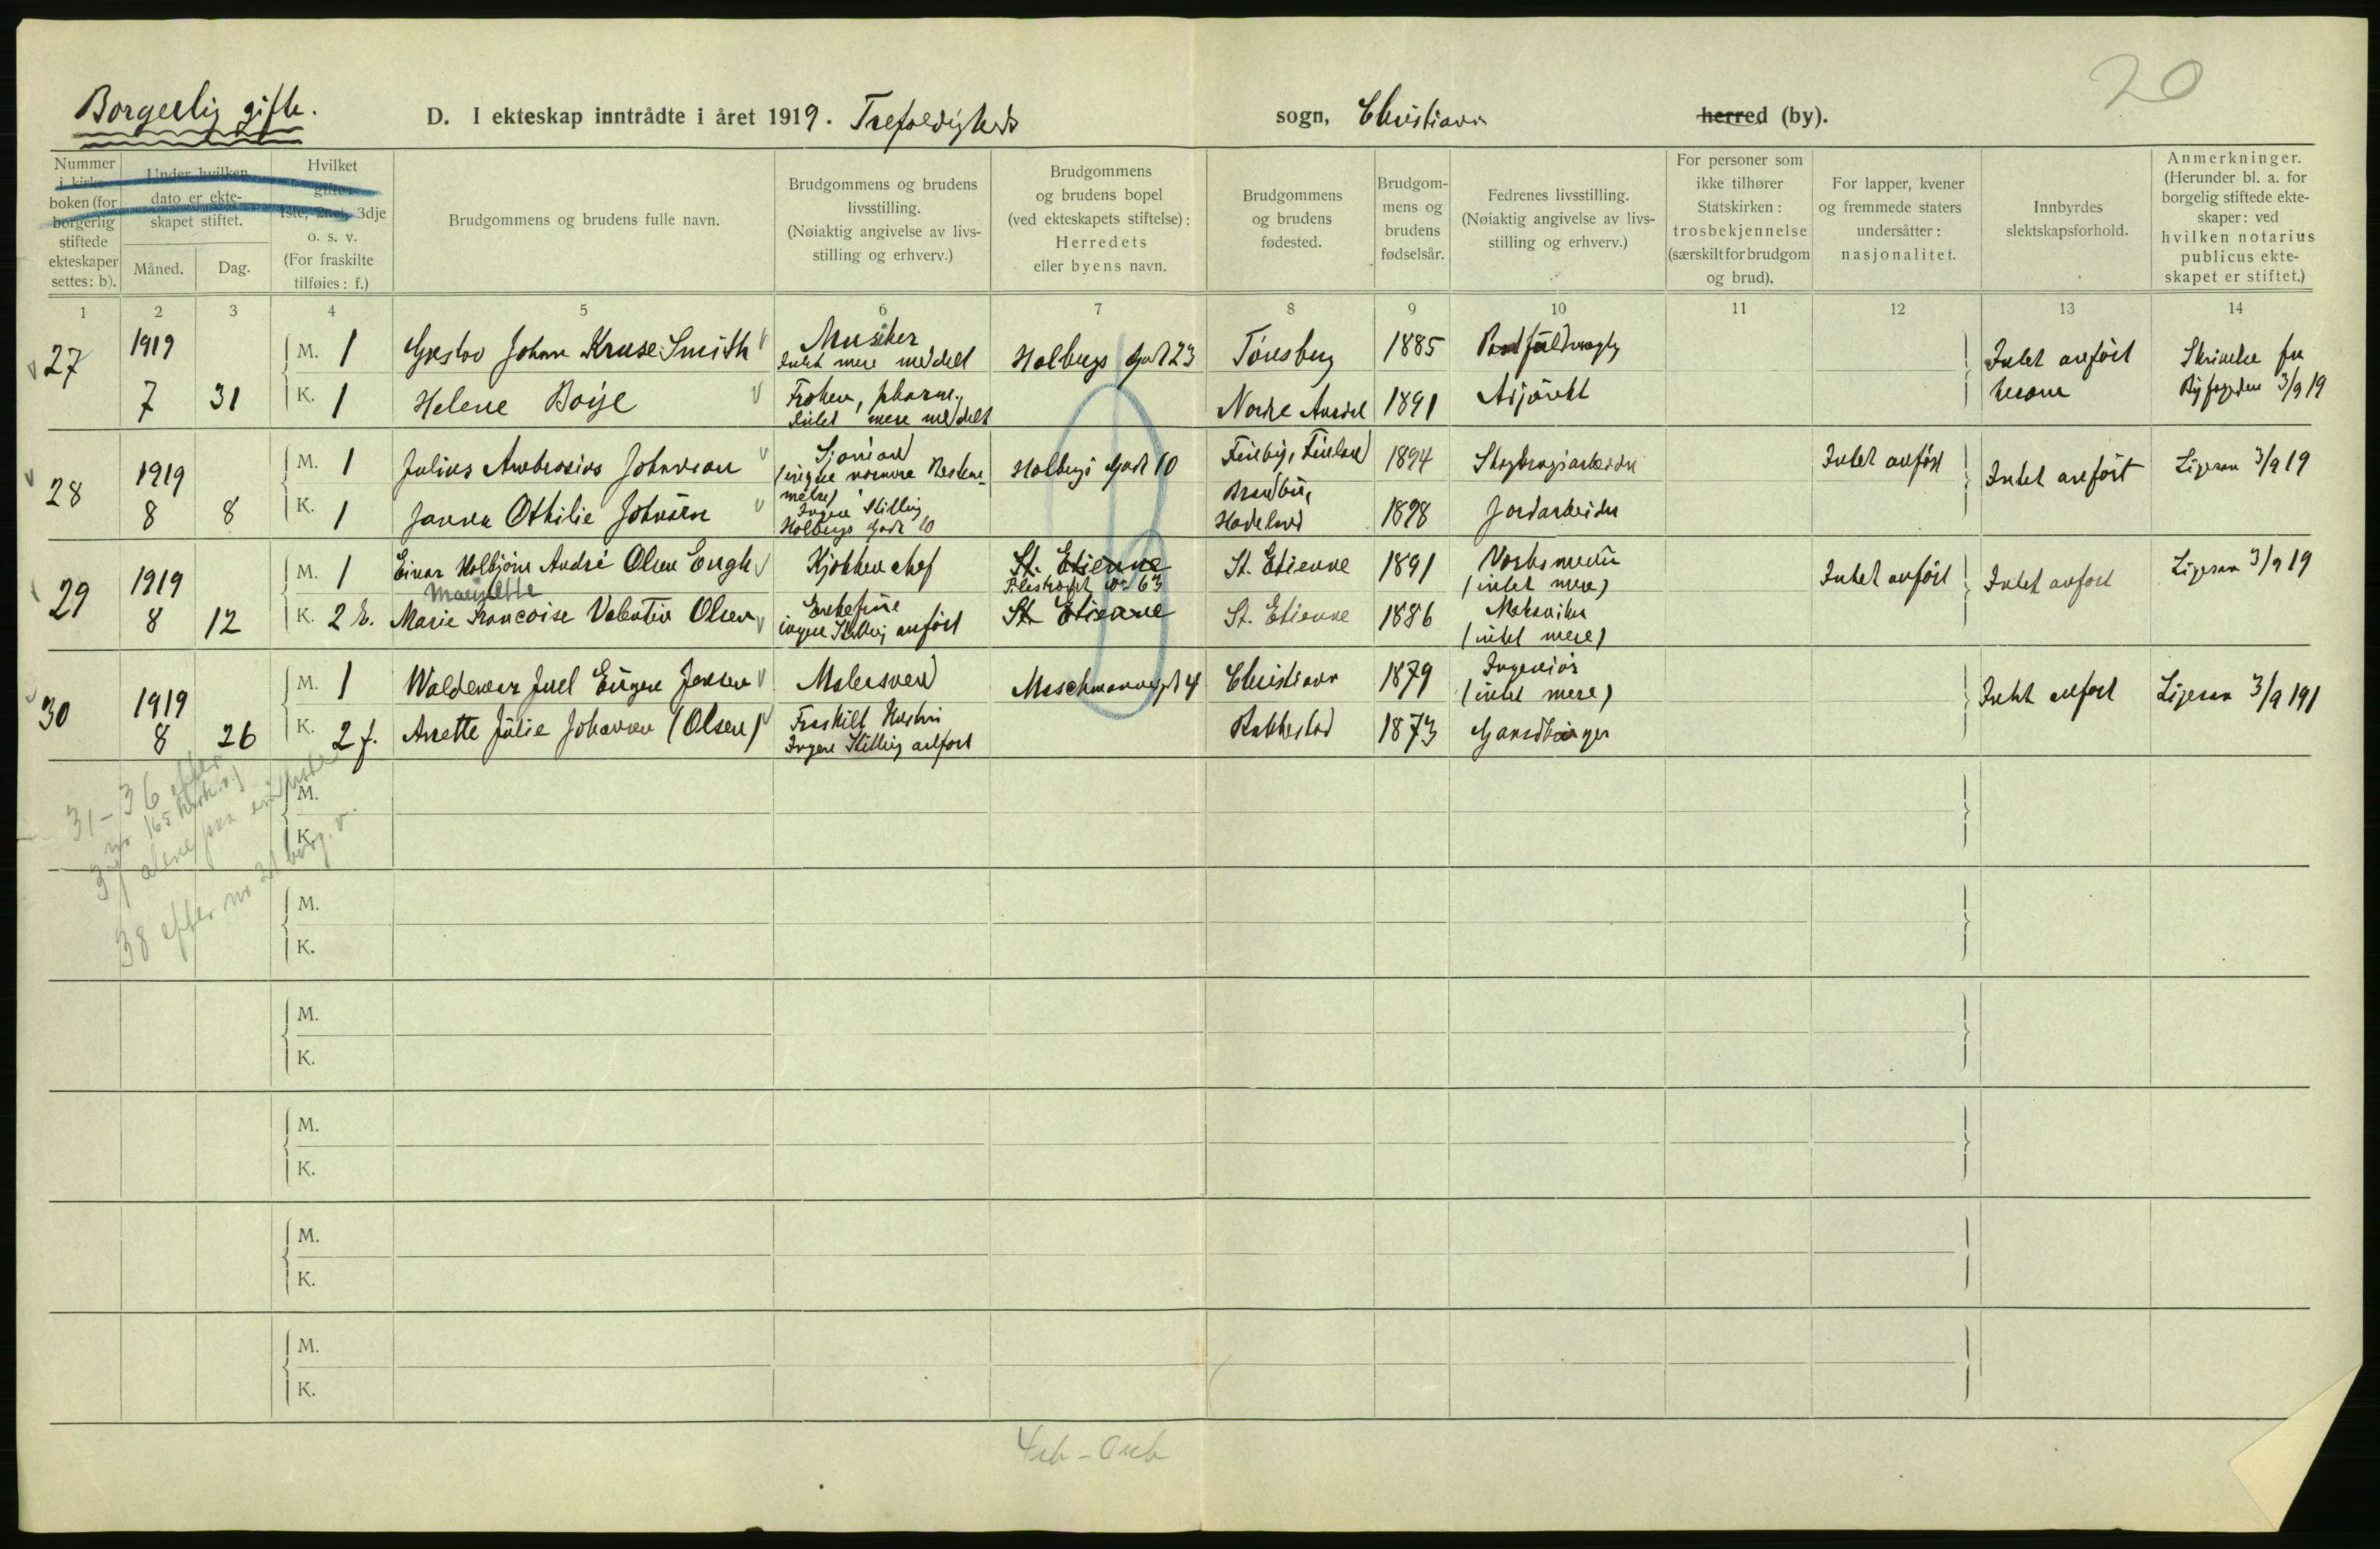 Borgerlig gifte.
D. I ekteskap inntrådte i året 1919. Trefoldigheds sogn, Christiania herred (by).
20
Nummer i kirkeboken (for borgerlig stiftede ekteskaper settes: b).
Under hvilken dato er ekteskapet stiftet.
Måned.
Dag.
Hvilket gifte: 1ste, 2net, 3dje o. s. v. (For fraskilte tilføies: f.)
Brudgommens og brudens fulle navn.
Brudgommens og brudens livsstilling. (Nøiaktig angivelse av livsstilling og erhverv.)
Brudgommens og brudens bopel (ved ekteskapets stiftelse): Herredets eller byens navn.
Brudgommens og brudens fødested.
Brudgommens og brudens fødselsår.
Fedrenes livsstilling. (Nøiaktig angivelse av livsstilling og erhverv.)
For personer som ikke tilhører Statskirken: trosbekjennelse (særskilt for brudgom og brud).
For lapper, kvener og fremmede staters undersåtter: nasjonalitet.
Innbyrdes slektskapsforhold.
Anmerkninger. (Herunder bl. a. for borgelig stiftede ekteskaper: ved hvilken notarius publicus ekteskapet er stiftet.)
1 2 3 4 5 6 7 8 9 10 11 12 13 14
27 1919 7 31
M. 1 Gustav Johan Kruse Smith Musiker Intet mere meddelt Holbergs Gade 23 Tönsberg 1885 Intet anfört
K. 1 Helene Boije Fröken, pharm., Intet mere meddelt Nordre Aurdal 1891 Skrivelse fra Byfogden 3/9 19
28 1919 8 8
M. 1 Julius Ambrosius Johansson Sjömand Holbergs Gade 10 Finby, Finland 1894 Intet anfört Intet anfört Ligesaa 3/9 19
K. 1 Janna Othilie Johnsen Ingen Stilling Holbergs Gade 10 Brandbu, Hadeland 1898 Jordarbeider
29 1919 8 12
M. 1 Einar Kolbjörn André Olsen Engh Kjökkenchef St. Etienne Pilestrædet no 63 St. Etienne 1891 (intet mere) Intet anfört Intet anfört Ligesaa 3/9 19
K. 2 E. Marie Francoise Valentin Olsen Enkefrue ingen Stilling anfört St. Etienne St. Etienne 1886 Mekaniker (intet mere)
30 1919 8 26
M. 1 Waldemar Juel Eugen Jensen Malersvend Maschmannsgt 4 Christiania 1879 Ingeniör (intet mere) Intet anfört Ligesaa 3/9 191
K. 2 f. Anette Julie Johansen (Olsen) Fraskilt Hustru Ingen Stilling anfört Rakkestad 1873 Gaardbruger
31-36 efter
no 165 kirk. v.
37 alene paa
38 efter no 21 borg. v.
M.
K.
M.
K.
M.
K.
M.
K.
M.
K.
M.
K.